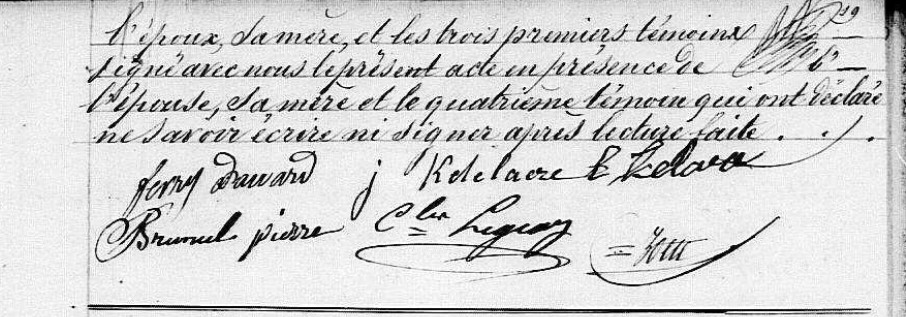 l'époux, sa mère, et les trois premiers témoins
signé avec nous le présent acte en présence de
l'épouse, sa mère et le quatrième témoin qui ont déclaré
ne savoir écrire ni signer après lecture faite . . .
ferry Dauard j Kdelacre
Brunel pierre Ches Leguay